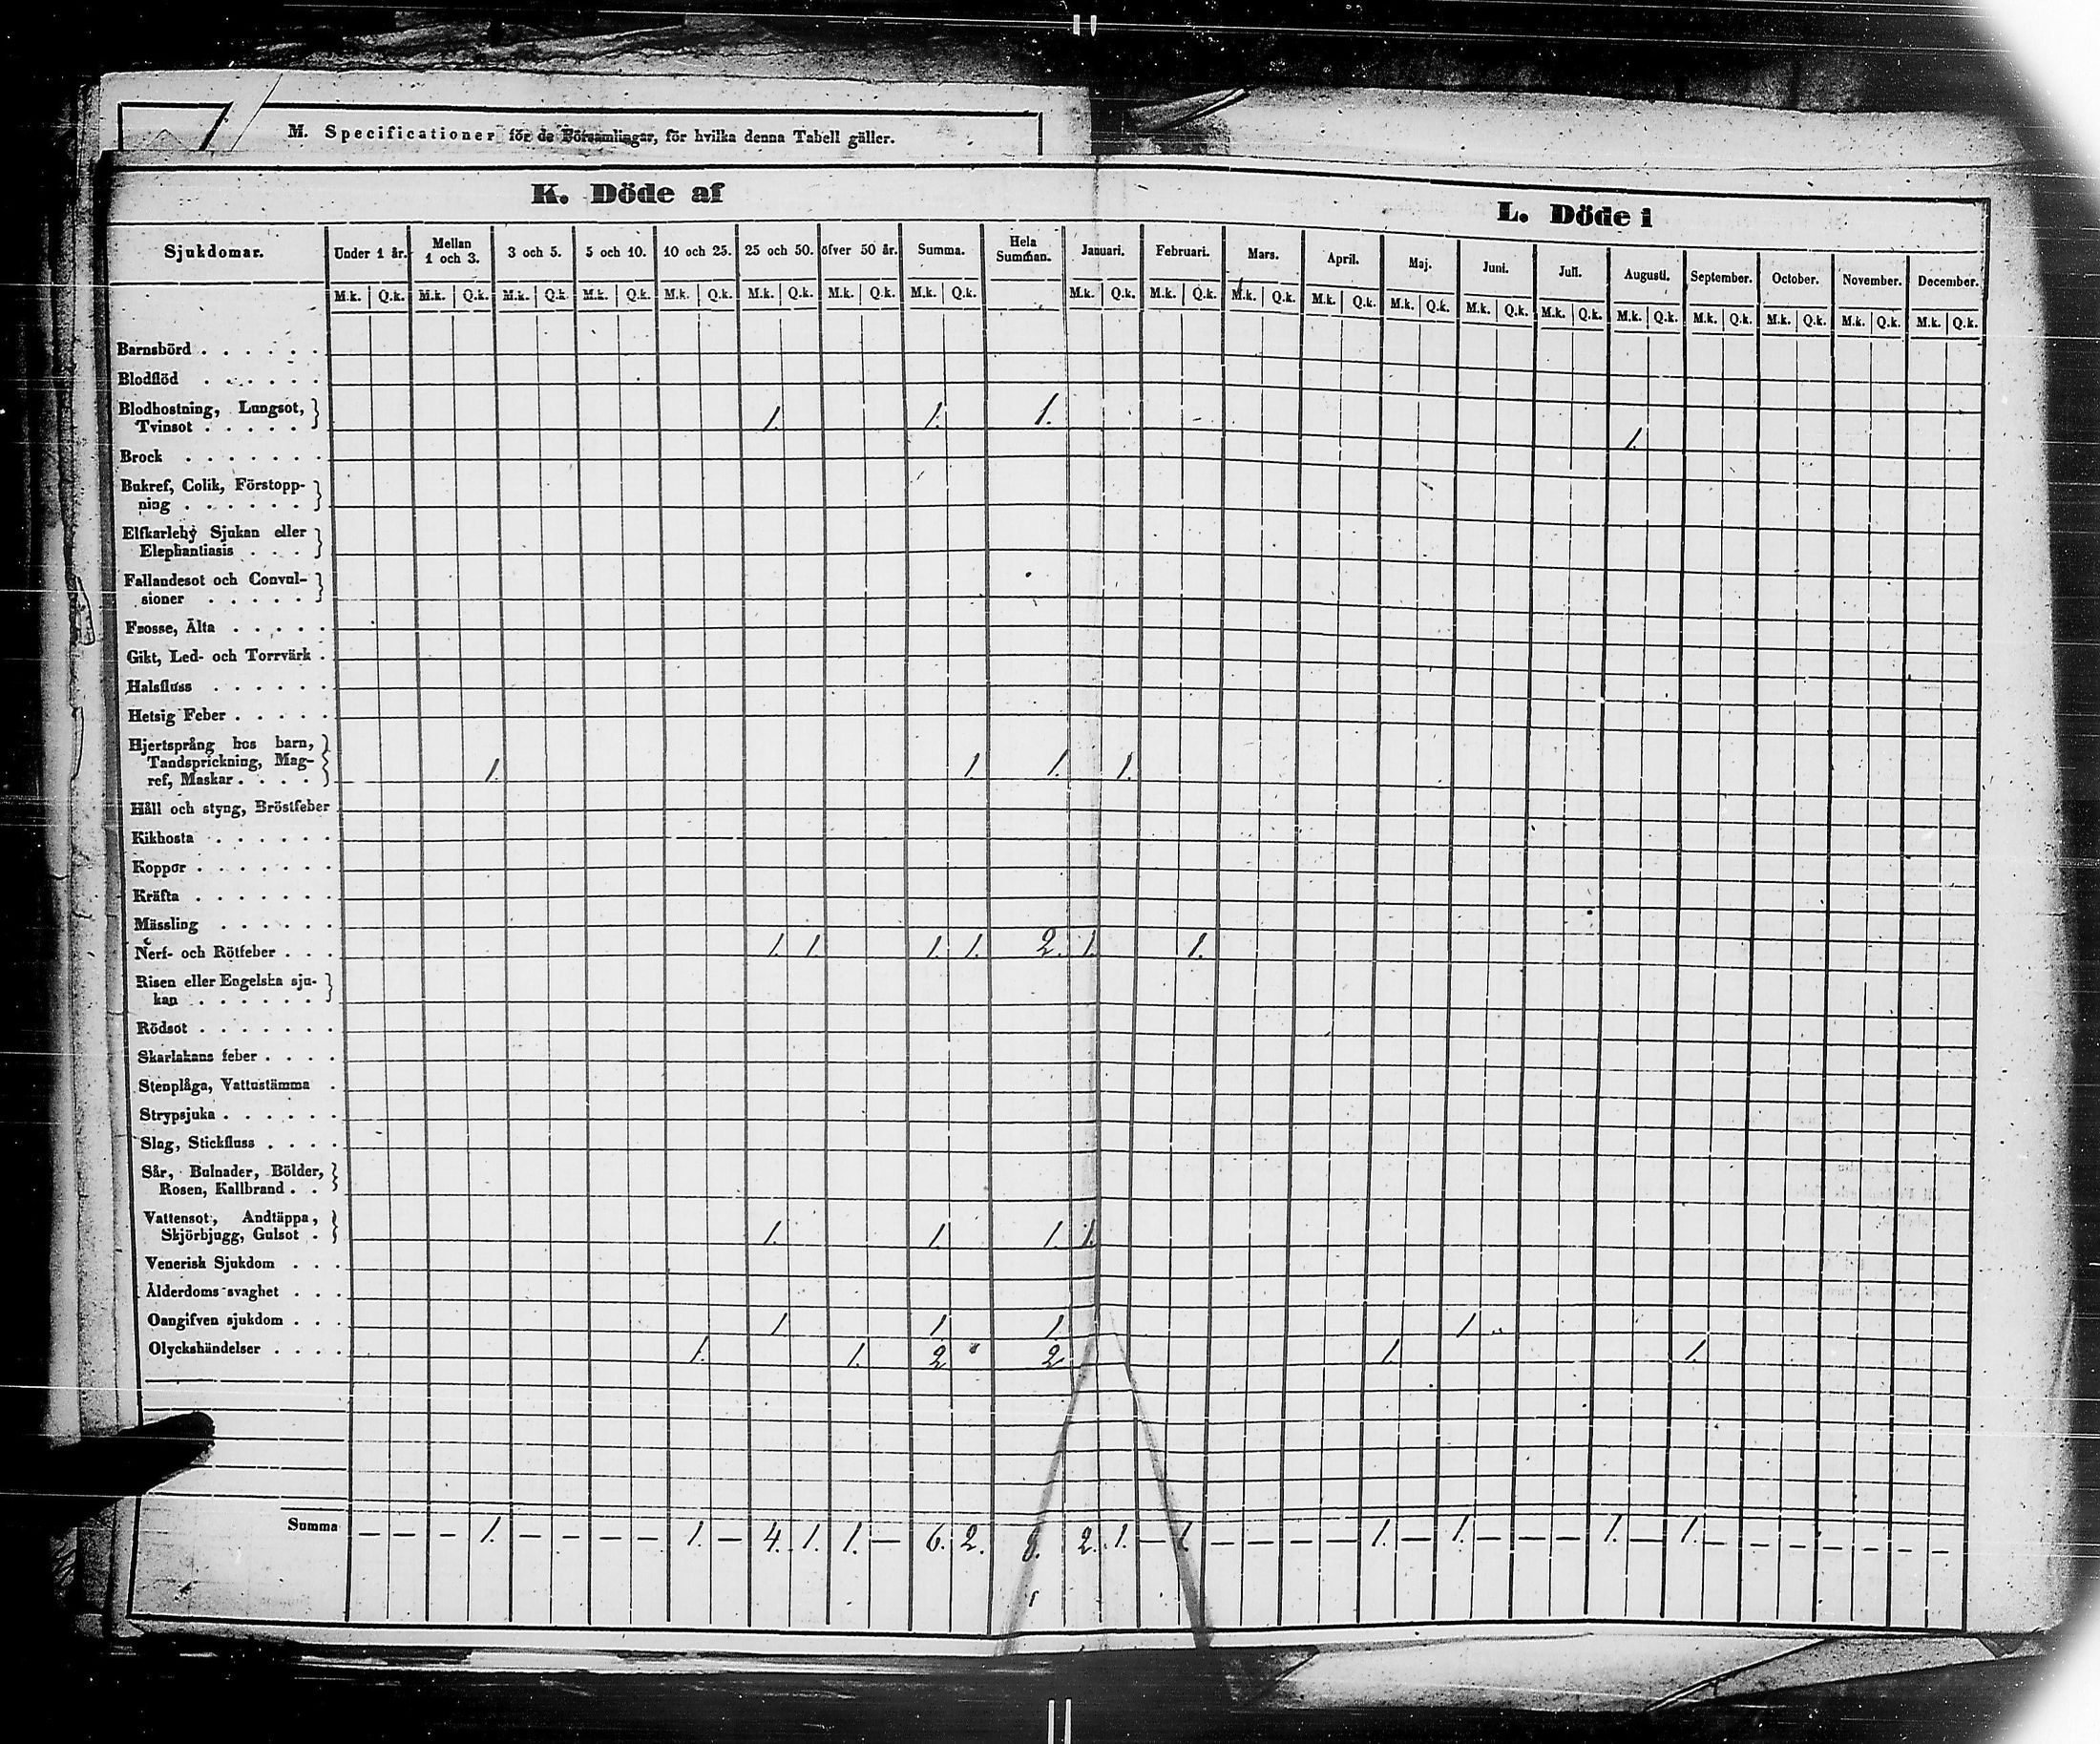 M. Specificationer för de Församlingar, för hvilka denna Tabell gäller.
K. Döde af
L. Döde i
Sjukdomar. Under 1 år. Mellan 1 och 3. 3 och 5. 5 och 10. 10 och 25. 25 och 50. öfver 50 år. Summa. Hela Summan. Januari. Februari. Mars. April. Maj. Juni. Juli. Augusti. September. October. November. December.
M.k. Q.k. M.k. Q.k. M.k. Q.k. M.k. Q.k. M.k. Q.k. M.k. Q.k. M.k. Q.k. M.k. Q.k. M.k. Q.k. M.k. Q.k. M.k. Q.k. M.k. Q.k. M.k. Q.k. M.k. Q.k. M.k. Q.k. M.k. Q.k. M.k. Q.k. M.k. Q.k. M.k. Q.k. M.k. Q.k.
Barnsbörd . . . . . .
Blodflöd . . . . . .
Blodhostning, Lungsot,
Tvinsot . . . . . 1. 1. 1. 1.
Brock . . . . . . .
Bukref, Colik, Förstopp-
ning . . . . . .
Elfkarleby Sjukan eller
Elephantiasis . . .
Fallandesot och Convul-
sioner . . . . .
Frosse, Älta . . . . .
Gikt, Led- och Torrvärk .
Halsfluss . . . . . .
Hetsig Feber . . . . .
Hjertsprång hos barn,
Tandsprickning, Mag-
ref, Maskar . . . . 1. 1 1. 1.
Håll och styng, Bröstfeber
Kikhosta . . . . . .
Koppor . . . . . . .
Kräfta . . . . . . .
Mässling . . . . . .
Nerf- och Rötfeber . . . 1. 1. 1. 1. 2. 1. 1.
Risen eller Engelska sju-
kan . . . . . .
Rödsot . . . . . . .
Skarlakans feber . . . .
Stenplåga, Vattustämma .
Strypsjuka . . . . . .
Slag, Stickfluss . . . .
Sår, Bulnader, Bölder,
Rosen, Kallbrand . .
Vattensot, Andtäppa,
Skjörbjugg, Gulsot . 1. 1. 1. 1.
Venerisk Sjukdom . . .
Ålderdoms svaghet . . .
Oangifven sjukdom . . . 1 1. 1. 1
Olyckshändelser . . . . 1. 1. 2 2 1. 1.
Summa — — — 1. — — — — 1. — 4. 1. 1. — 6. 2. 8. 2. 1. — 1. — — — — 1. — 1. — — — 1. — 1. — — — — — — —